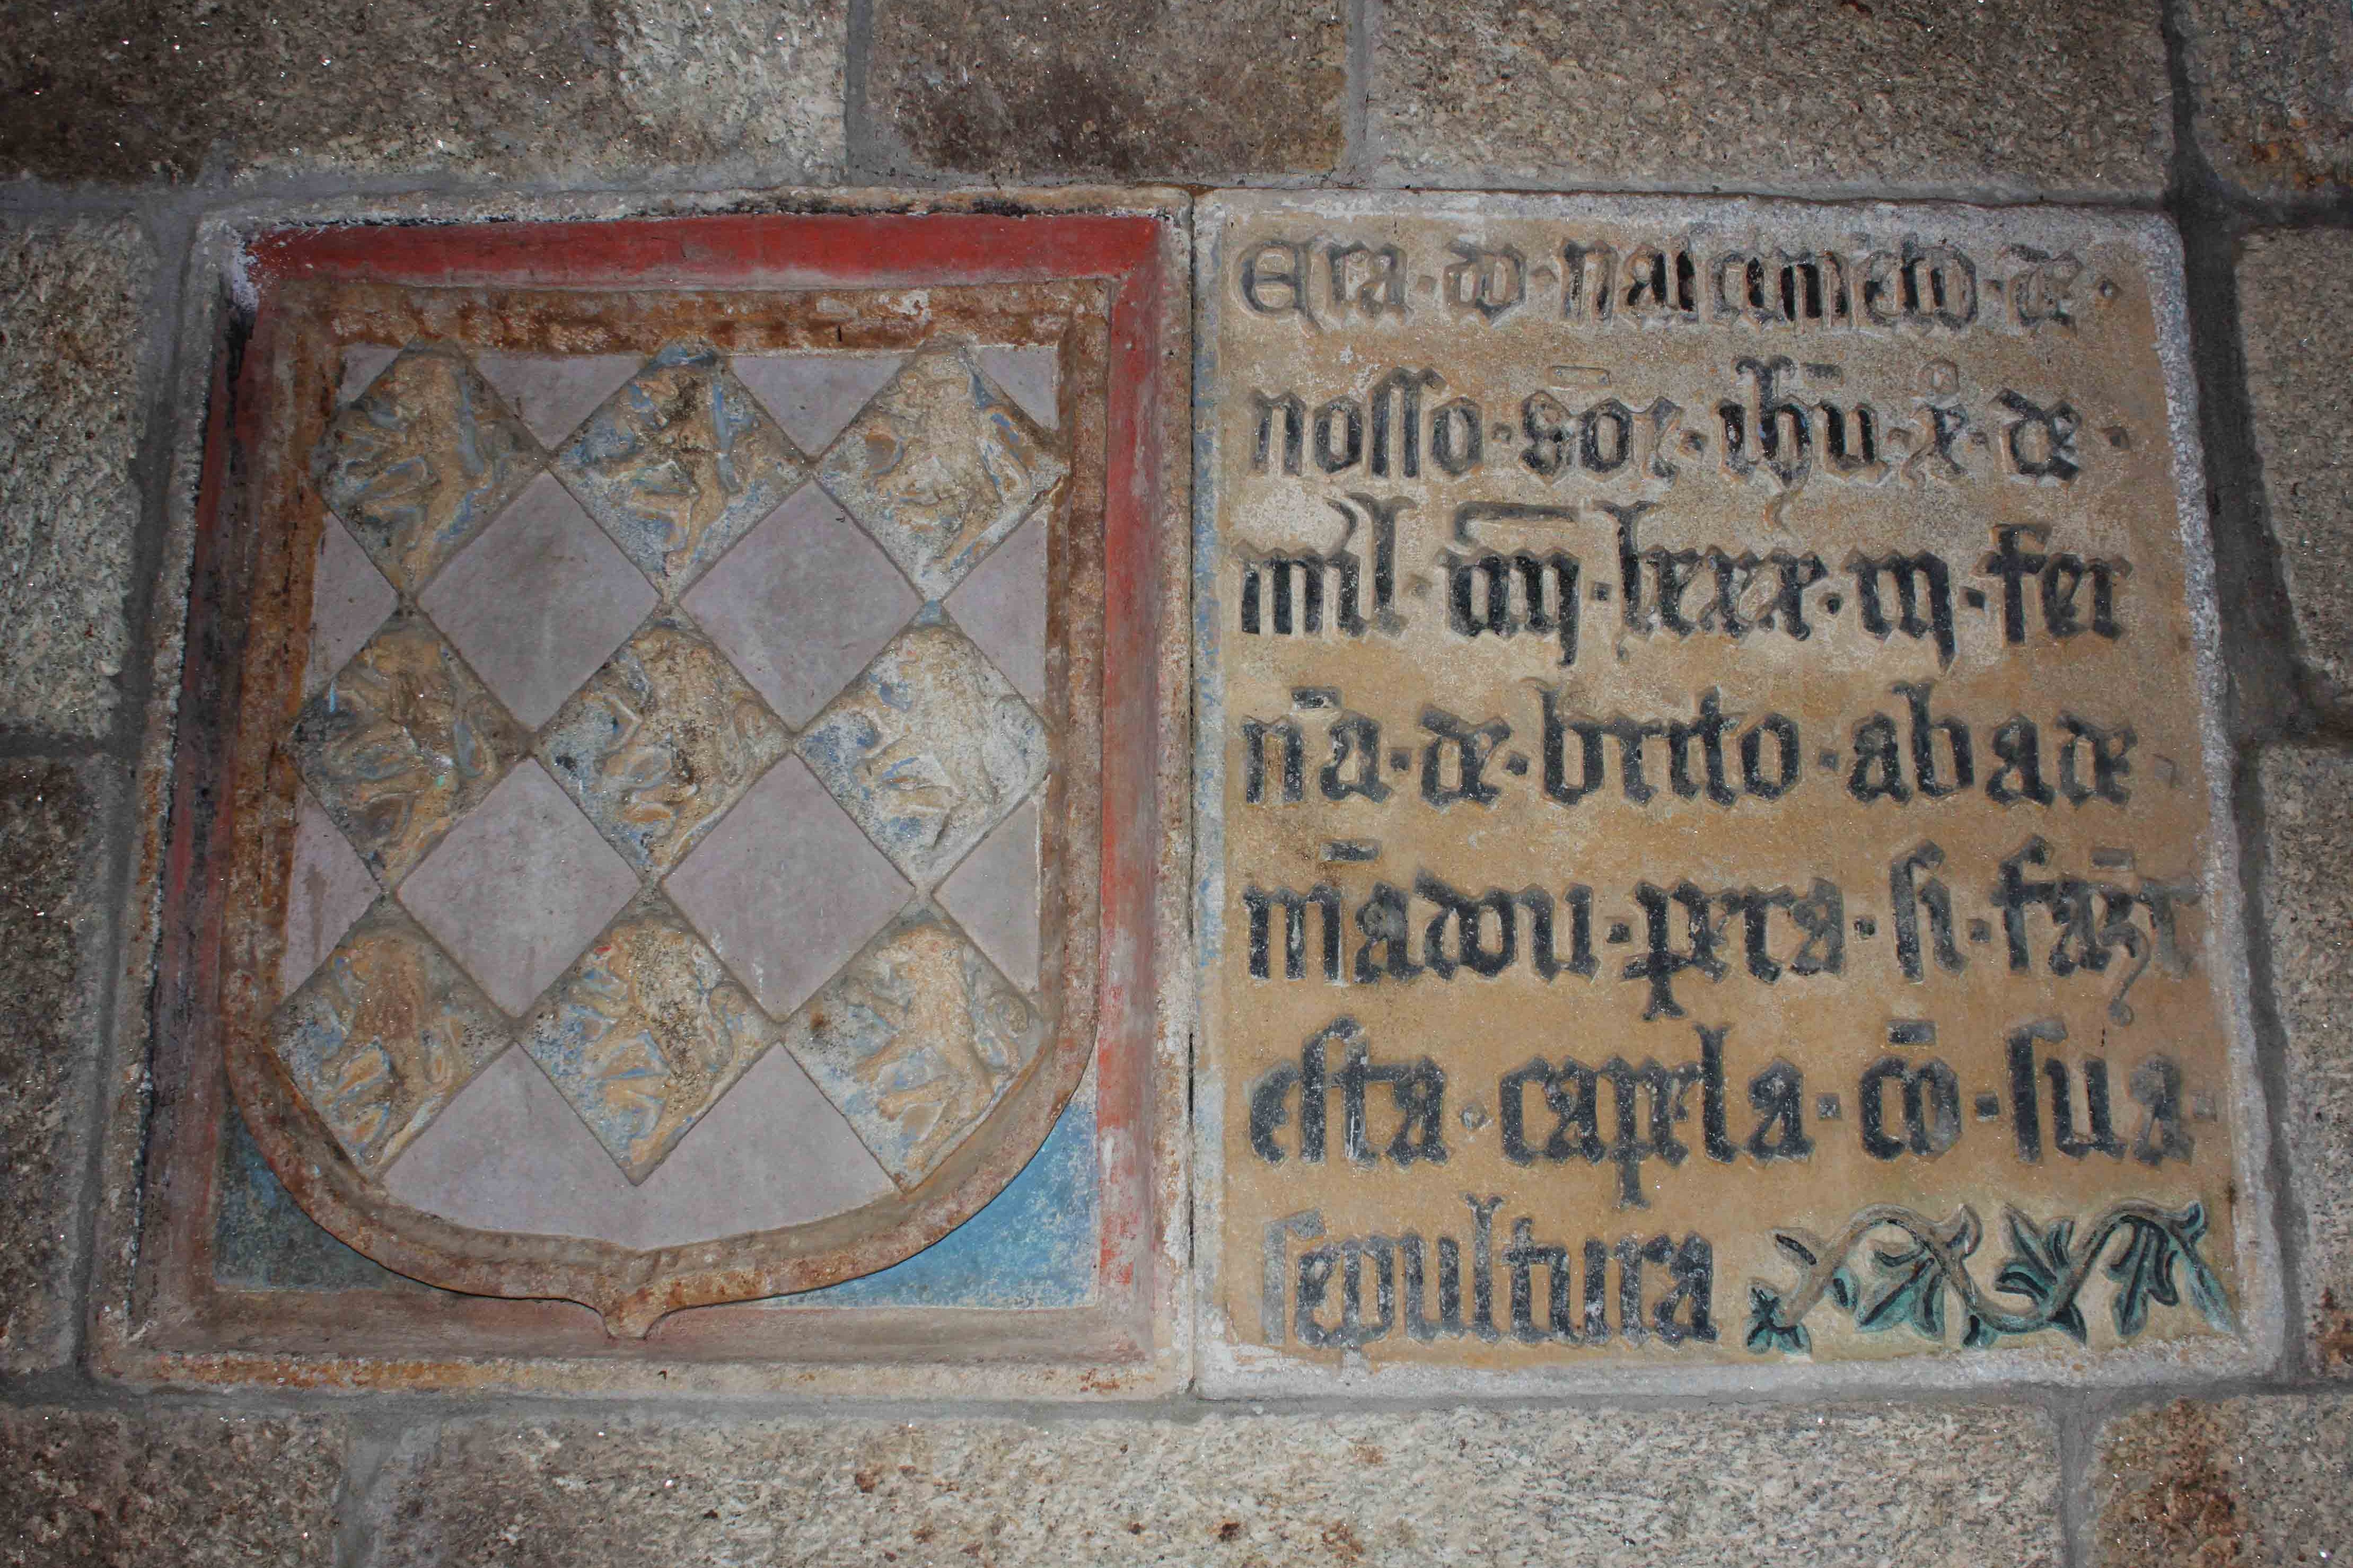 Era · do · nascimẽto · de ·
nosso · sõr · ihũ · xº · de ·
mil · iiijͨ · lxxx · iij · fer
nã · de · brito · abade
mãdou · pera · si · fazr̃
esta · capela · cõ · sua ·
sepultura